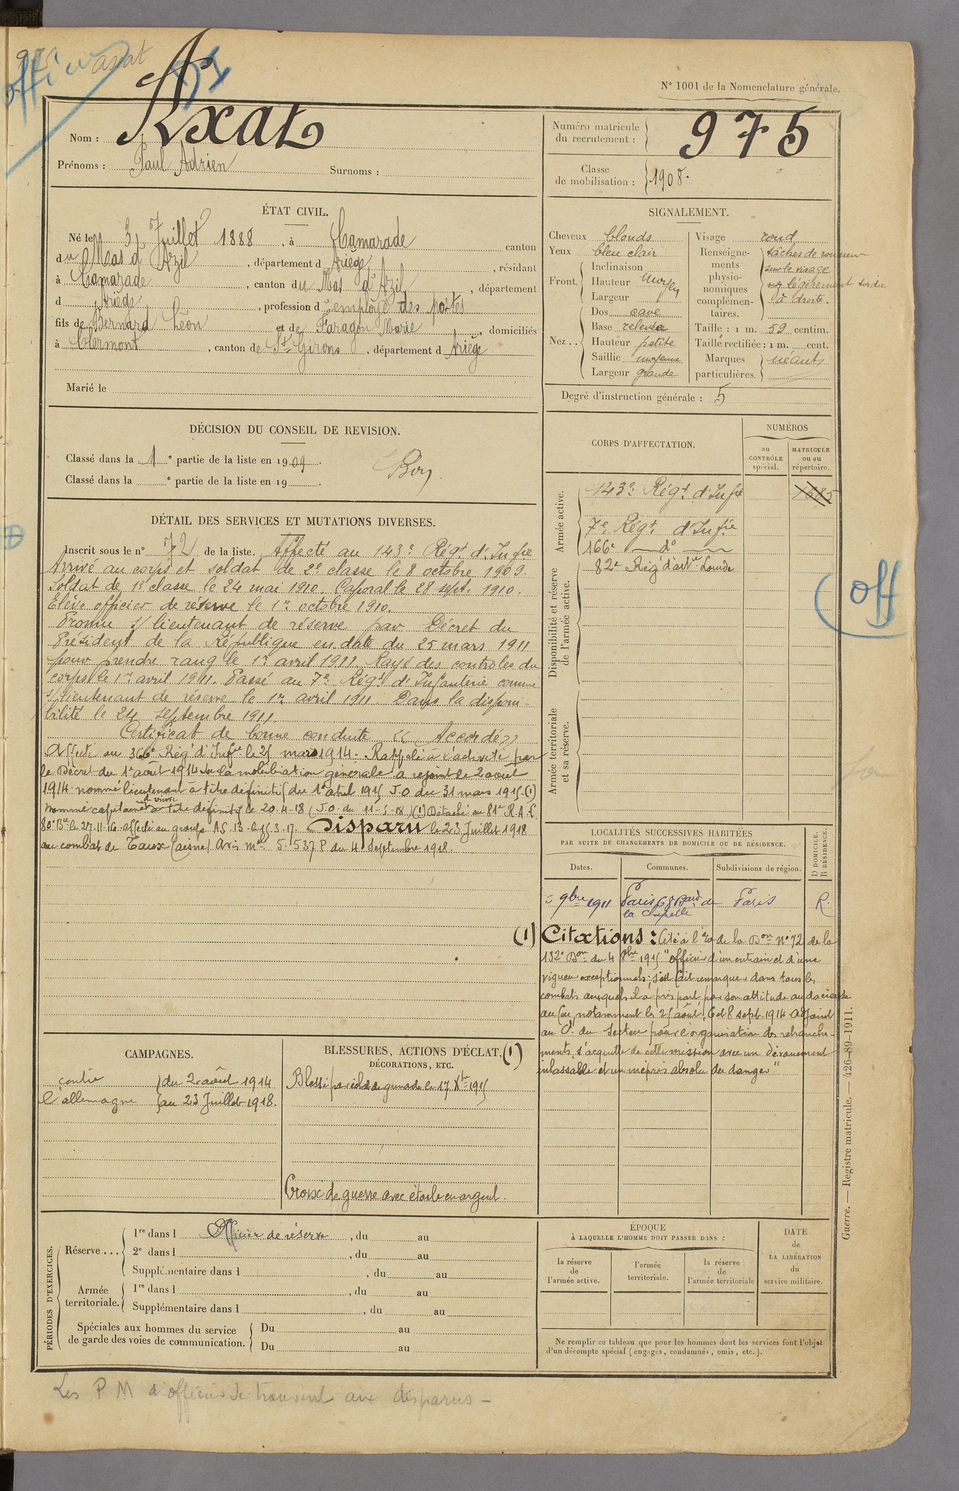 975
Axat
Offic
N° 1001 de la Nomenclature générale.
Nom : Axat
Prénoms : Paul Adrien Surnoms :
Numéro matricule du recrutement : 975
Classe de mobilisation : 1908.
ÉTAT CIVIL.
Né le 3 Juillet 1888, à Camarade canton
du Mas d'Azil, département d Ariège, résidant
à Camarade, canton du Mas d'Azil, département
d Ariège, profession d'employé des postes
fils de Bernard Léon et de Faragon Marie, domiciliés
à Clermont, canton de St Girons, département d Ariège
Marié le
SIGNALEMENT.
Cheveux blonds
Yeux bleu clair
Front. Inclinaison
Hauteur moyen
Largeur
Nez.. Dos cave
Base relevée
Hauteur petite
Saillie moyenne
Largeur grande
Visage rond
Renseignements physionomiques complémentaires.
taches de rousseur
sur le visage
légèrement
la droite.
Taille : 1 m. 59 centim.
Taille rectifiée : 1 m. cent.
Marques particulières. néant
Degré d'instruction générale : 5
DÉCISION DU CONSEIL DE REVISION.
Classé dans la 1e partie de la liste en 1909.
Classé dans la e partie de la liste en 19
Bon
CORPS D'AFFECTATION.
NUMÉROS
au CONTRÔLE spécial.
MATRICULE ou au répertoire.
Armée active.
143e Régt d'Infie
7e Régt d'Infie
166e do
Disponibilité et réserve de l'armée active.
82e Rég d'artie Lourde
Armée territoriale et sa réserve.
off
DÉTAIL DES SERVICES ET MUTATIONS DIVERSES.
Inscrit sous le n° 72 de la liste. Affecté au 143e Régt d'Infie
Arrivé au corps et soldat de 2e classe le 8 octobre 1909.
Soldat de 1e classe le 24 mai 1910. Caporal le 28 sept. 1910.
Elève officier de réserve le 1er octobre 1910.
Promu s/ lieutenant de réserve par Décret du
Président de la République en date du 25 mars 1911
pour prendre rang le 1er avril 1911. Rayé des contrôles du
corps le 1er avril 1911. Passé au 7e Régt d'Infanterie comme
s/ lieutenant de réserve le 1er avril 1911 Dans la disponi-
bilité le 24 septembre 1911.
Certificat de bonne conduite « Accordé »
Affecté au 366e Rég d'Infie le 25 mars 1914. Rappelé à l'activité par
le Décret du 1er aout 1914 sur la mobilisation générale a rejoint le 2 aout
1914. nommé lieutenant à titre définitif du 1er avril 1915 J.O du 31 mars 1915 (1)
Nommé capitaine à titre définitif le 20-4-18 (J.O. du 11-5-18) (1) Détaché au 81e R.A.L
80e Bie le 27-11-16. affecté au groupe AS. 13. le 15-3-17. Disparu le 23 Juillet 1918
au combat de (aisne) Avis mel S. 537 P du 4 Septembre 1918.
LOCALITÉS SUCCESSIVES HABITÉES
PAR SUITE DE CHANGEMENTS DE DOMICILE OU DE RÉSIDENCE.
Dates. Communes. Subdivisions de région.
D DOMICILE. R RÉSIDENCE.
9bre 1911 Paris Bard de la Chapelle Paris R.
(1) Citations : Cité à l'o de la Bon N° 72 de la
132e Don du 4 8bre 1915 "officier d'un entrain et d'une
vigueur exceptionnels; s'est fait remarquer dans tous les
combats auxquels il a pris part, par son attitude audacieuse
au feu, notamment le 25 août, 6 et 8 sept. 1914. Adjoint
au Ct du Secteur pour l'organisation de retranche-
ments, s'acquitte de cette mission avec un dévouement
inlassable et un mépris absolu du danger"
CAMPAGNES.
contre l'allemagne
du 2 août 1914
au 23 Juillet 1918.
BLESSURES, ACTIONS D'ÉCLAT, (1)
DÉCORATIONS, ETC.
Blessé par éclat de grenade le 17 Xbre 1915
Croix de guerre avec étoile en argent.
PÉRIODES D'EXERCICES.
Réserve ... 1re dans l Officier de réserve, du au
2e dans l , du au
Supplémentaire dans l , du au
Armée territoriale. 1re dans l , du au
Supplémentaire dans l , du au
Spéciales aux hommes du service de garde des voies de communication. Du au
Du au
ÉPOQUE
À LAQUELLE L'HOMME DOIT PASSER DANS :
la réserve de l'armée active.
l'armée territoriale.
la réserve de l'armée territoriale
DATE DE LA LIBÉRATION du service militaire.
Ne remplir ce tableau que pour les hommes dont les services font l'objet
d'un décompte spécial (engagés, condamnés, omis, etc.).
Guerre. — Registre matricule. — 426-89-1911.
Les P M d'officier se trouvent aux disparus —